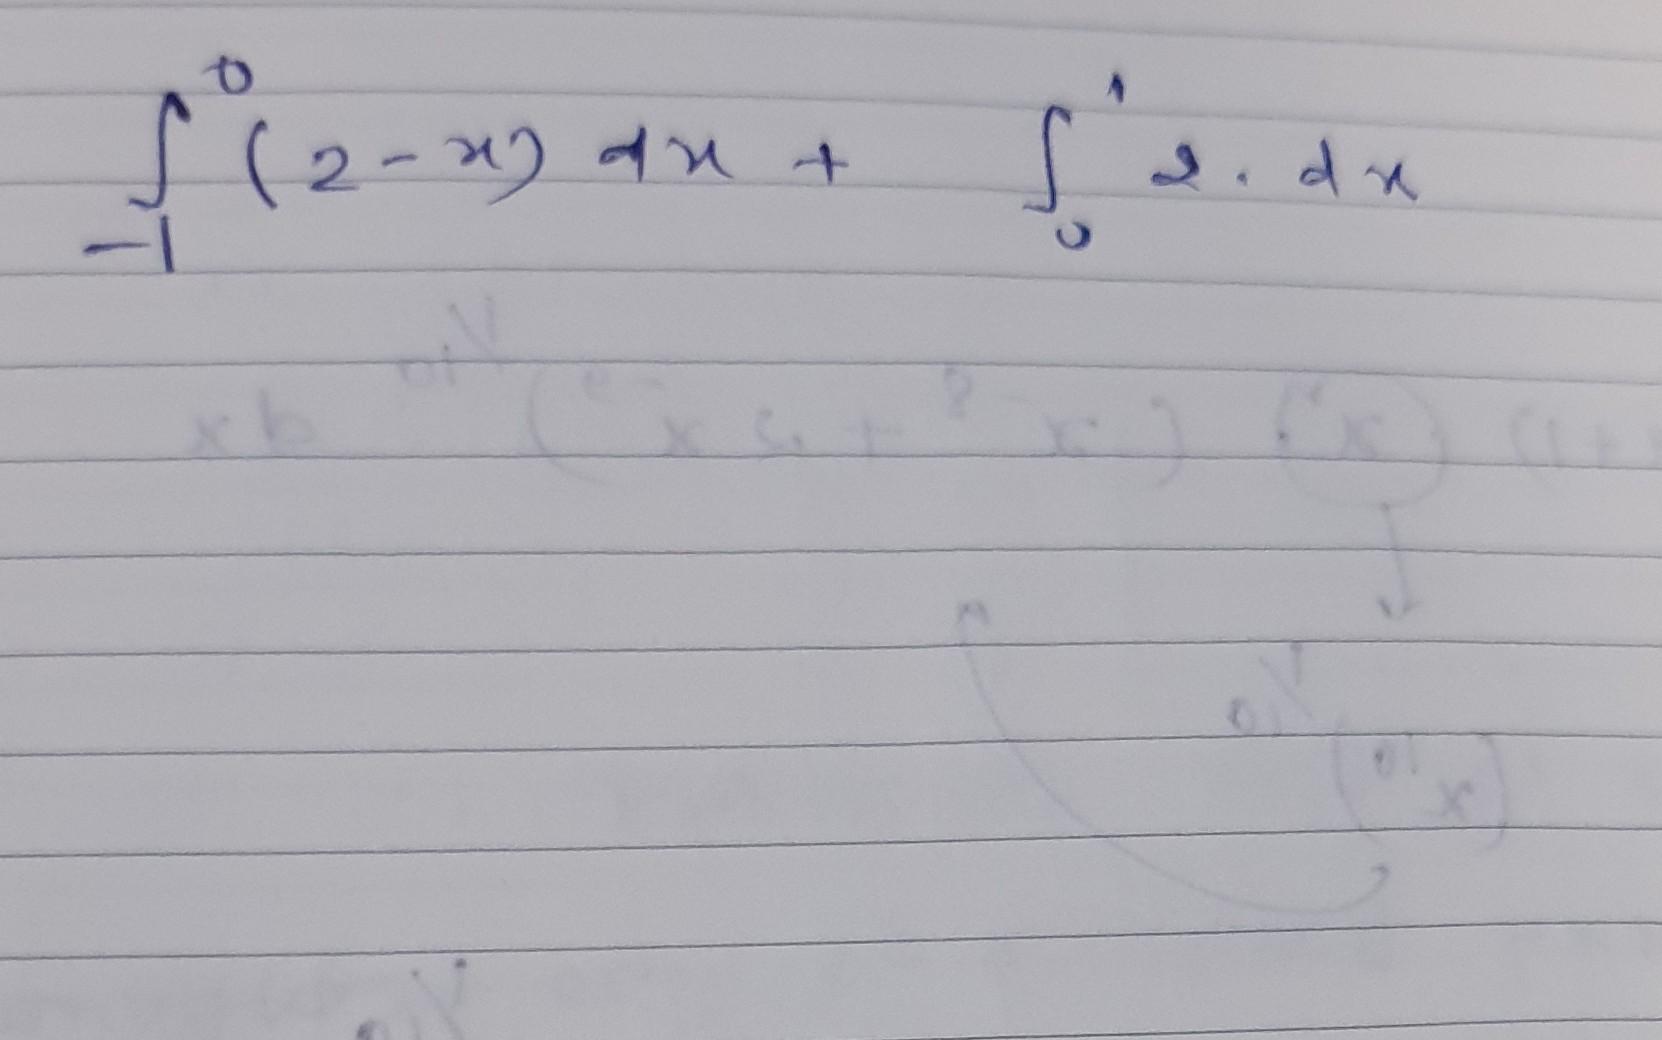 ∫_{-1}^{0} (2-x) dx + ∫_{0}^{1} 2. dx